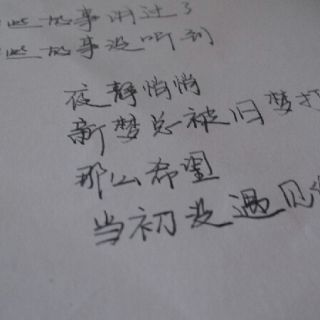 些故事讲过了
些故事没听到
夜静悄悄
新梦总被旧梦打
那么希望
当初没遇见